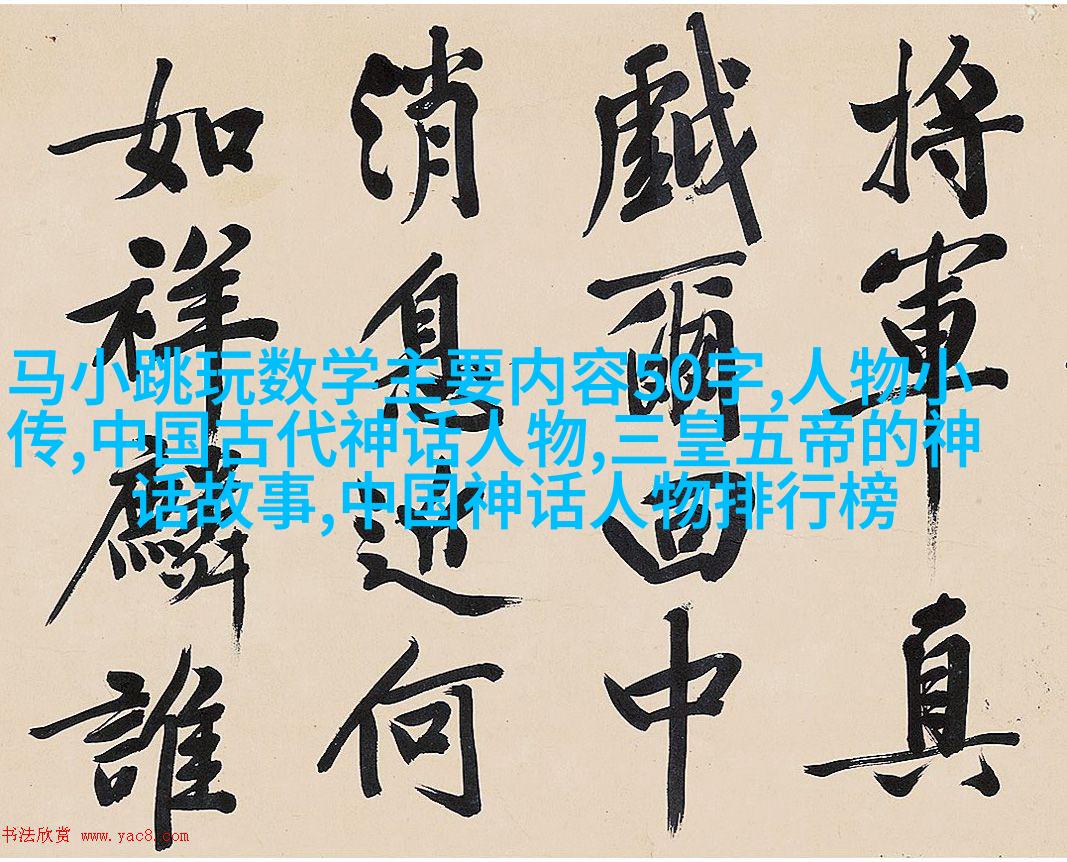 將軍真
戲爾回中
消息近何
如祥麟誰
马小跳玩数学主要内容50字,人物小
传,中国古代神话人物,三皇五帝的神
话故事,中国神话人物排行榜
书法欣赏 www.yac8.com